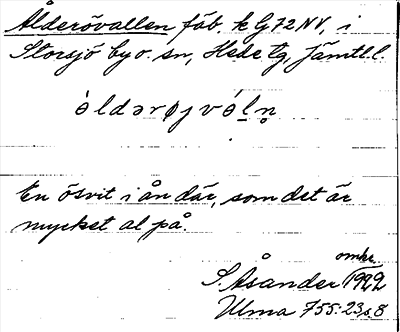 Ålderövallen fäb. k G72NV, i
Storsjö by o. sn, Hede tg, Jämtl. l.
ò̀ldərøjvó̀ln̥
En ösvit i ån där, som det är
mycket al på.
S. Åsander omkr. 1922
Ulma 755:23 s 8